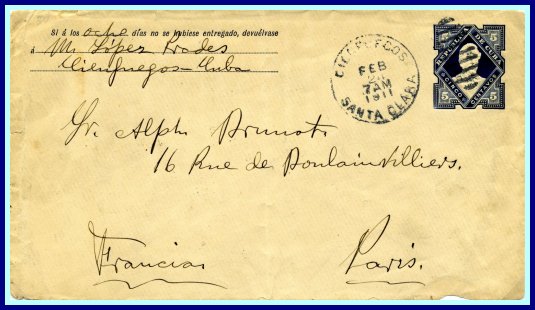 Si á los ocho días no se hubiese entregado, devuélvase
á M. López Prades
Cienfuegos - Cuba
CIENFUEGOS
FEB
7AM
1911
SANTA CLARA
REPUBLICA DE CUBA
5 5
5 5
CINCO CENTAVOS
Sr. Alph Brunot
16 Rue de Boulainvilliers.
Francia
Paris.